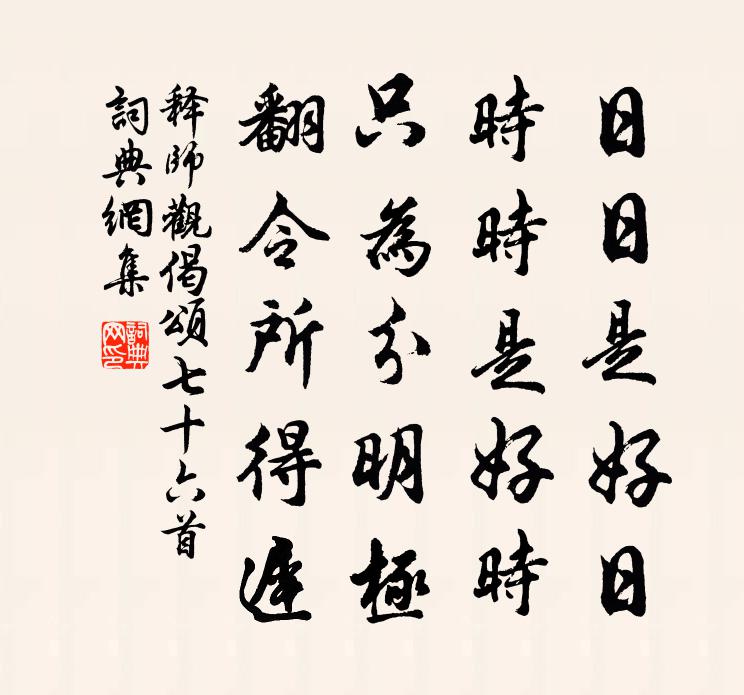 日日是好日
時時是好時
只為分明極
翻令所得遲
释師觀偈頌七十六首
詞典網集
詞典網印